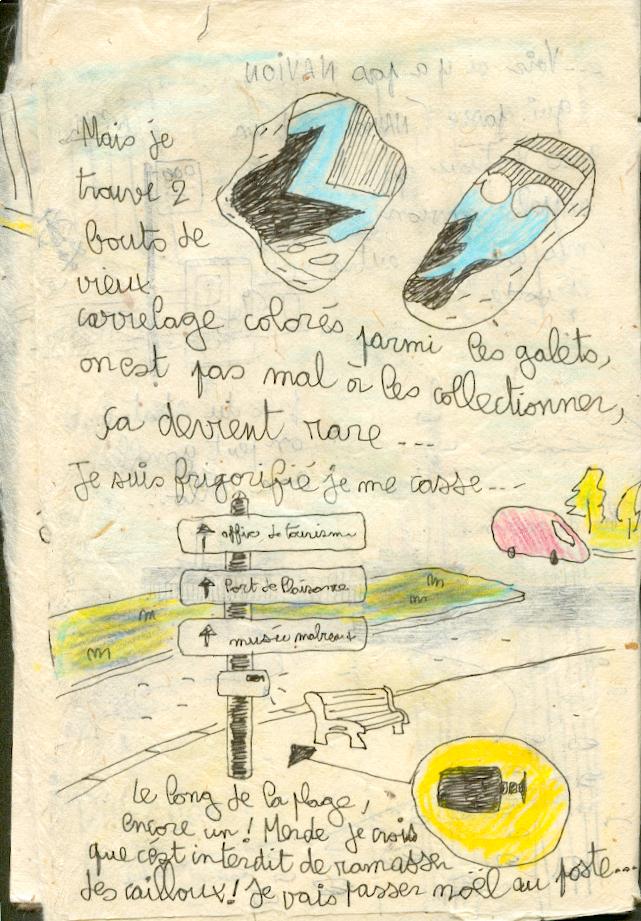 Mais je
trouve 2
bouts de
vieux
carrelage colorés parmi les galets,
on est pas mal à les collectionner,
ça devient rare ...
Je suis frigorifié je me casse...
office de tourisme
Port de Plaisance
musée malraux
Le long de la plage,
encore un! Merde je crois
que c'est interdit de ramasser
des cailloux! Je vais passer noël au poste...